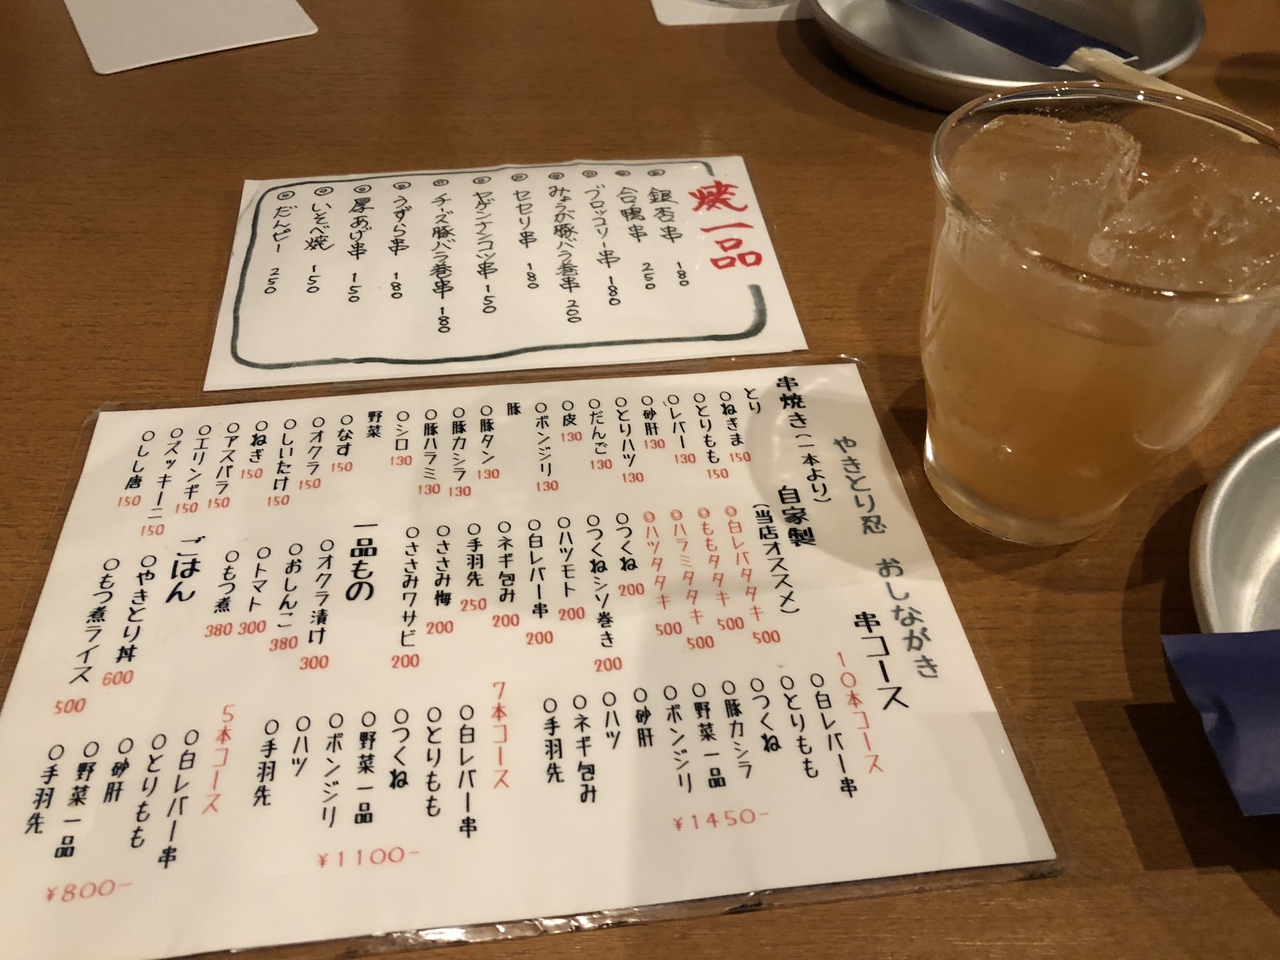 焼一品
◎銀杏串 180
◎合鴨串 250
◎ブロッコリー串 180
◎みょうが豚バラ巻串 200
◎セセリ串 180
◎ヤゲンナンコツ串 150
◎チーズ豚バラ巻串 180
◎うずら串 180
◎厚あげ串 150
◎いそべ焼 150
◎だんピー 250
やきとり忍 おしながき
串焼き(一本より)
とり
○ねぎま 150
○とりもも 150
○レバー 130
○砂肝 130
○とりハツ 130
○だんご 130
○皮 130
○ボンジリ 130
豚
○豚タン 130
○豚カシラ 130
○豚ハラミ 130
○シロ 130
野菜
○なす 150
○オクラ 150
○しいたけ 150
○ねぎ 150
○アスパラ 150
○エリンギ 150
○ズッキーニ 150
○しし唐 150
自家製
(当店オススメ)
◎白レバタタキ 500
◎ももタタキ 500
◎ハラミタタキ 500
◎ハツタタキ 500
○つくね 200
○つくねシソ巻き 200
○ハツモト 200
○白レバー串 200
○ネギ包み 200
○手羽先 250
○ささみ梅 200
○ささみワサビ 200
一品もの
○オクラ漬け 300
○おしんこ 380
○トマト 300
○もつ煮 380
ごはん
○やきとり丼 600
○もつ煮ライス 500
串コース
10本コース
○白レバー串
○とりもも
○つくね
○豚カシラ
○野菜一品
○ボンジリ
○砂肝
○ハツ
○ネギ包み
○手羽先
¥1450-
7本コース
○白レバー串
○とりもも
○つくね
○野菜一品
○ボンジリ
○ハツ
○手羽先
¥1100-
5本コース
○白レバー串
○とりもも
○砂肝
○野菜一品
○手羽先
¥800-